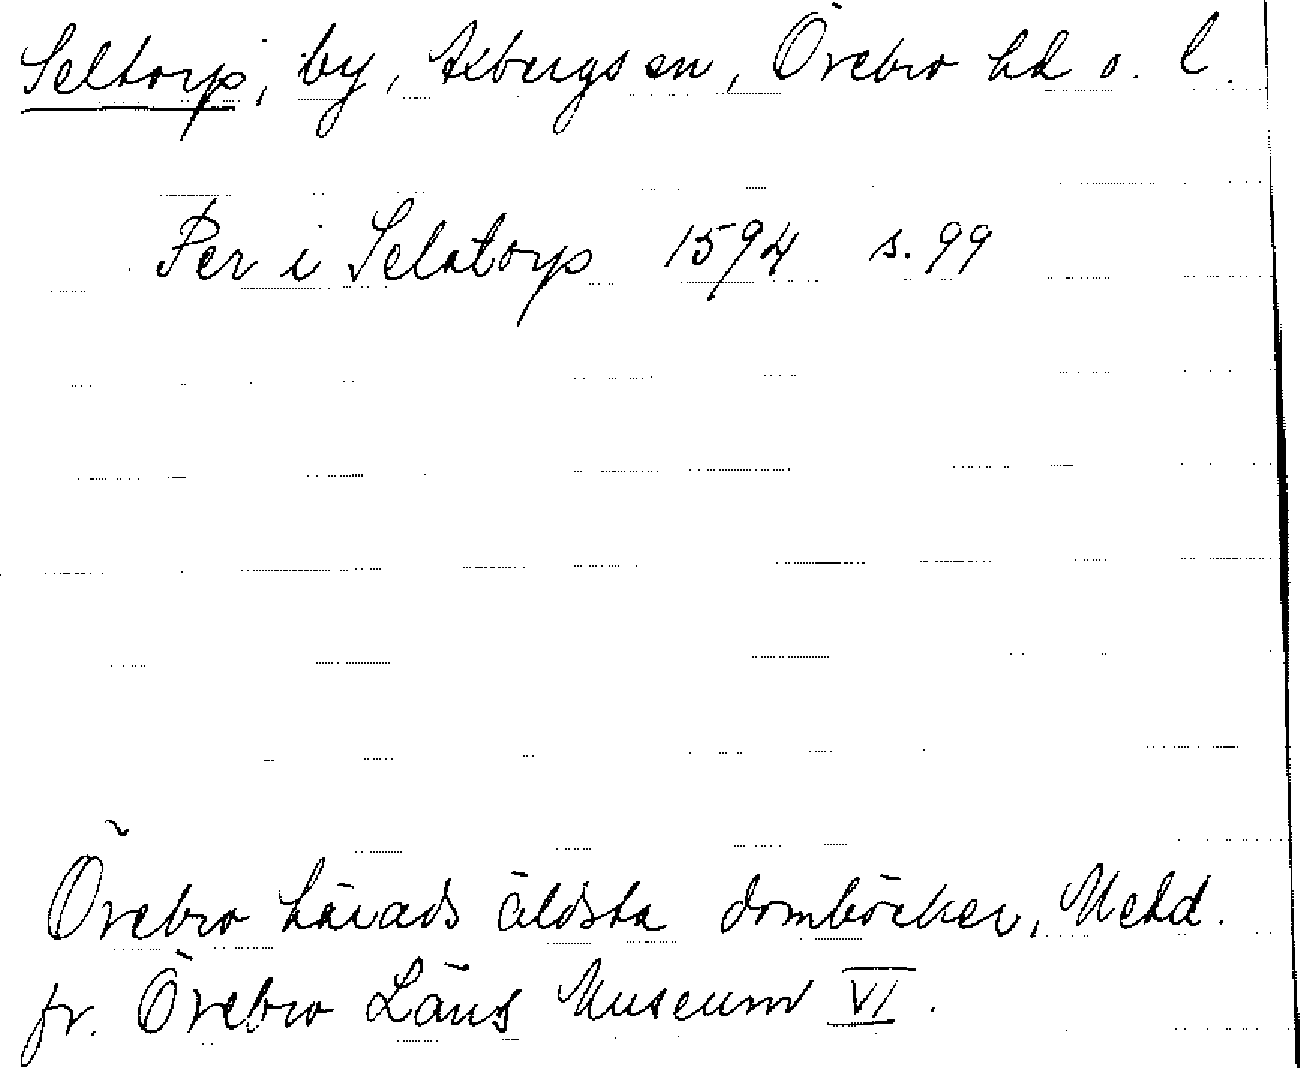 Seltorp, by, Axbergs sn, Örebro hd o. l.
Per i Selatorp 1594 s. 99
Örebro härads äldsta domböcker, Medd.
fr. Örebro Läns Museum VI.